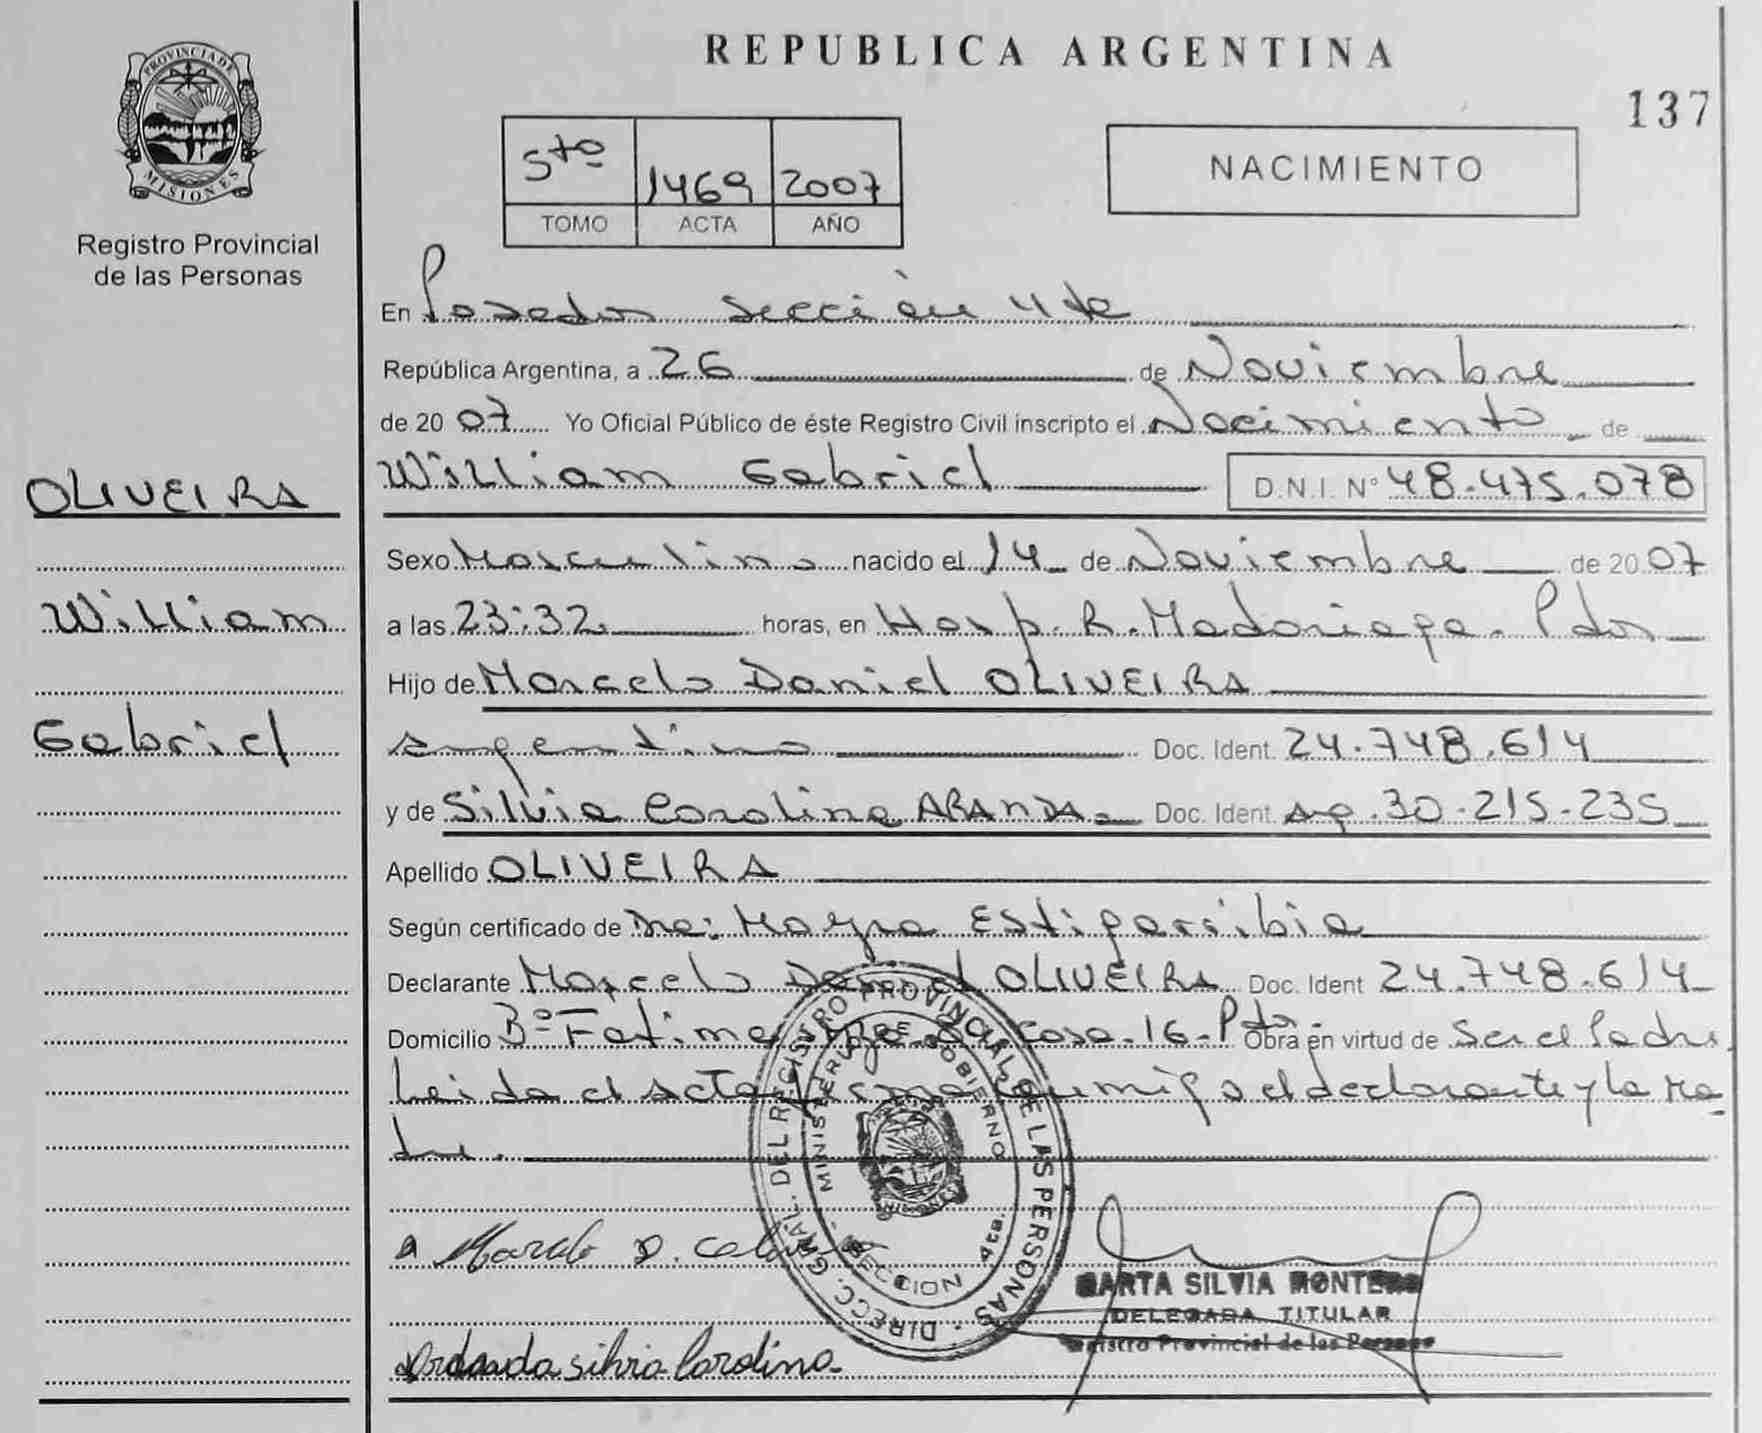 REPUBLICA ARGENTINA
137
PROVINCIA DE MISIONES
Registro Provincial
de las Personas
5to 1469 2007
TOMO ACTA AÑO
NACIMIENTO
En Posadas Sección 4ta
República Argentina, a 26 de Noviembre
de 2007 Yo Oficial Público de éste Registro Civil inscripto el Nacimiento de
William Gabriel D.N.I. N° 48.475.078
OLIVEIRA
William
Gabriel
Sexo Masculino nacido el 14 de Noviembre de 2007
a las 23:32 horas, en Hosp. R. Madariaga. Pdas
Hijo de Marcelo Daniel OLIVEIRA
argentino Doc. Ident. 24.748.614
y de Silvia Carolina ARANDA Doc. Ident. Arg. 30.215.235
Apellido OLIVEIRA
Según certificado de Dra: Mayra Estigarribia
Declarante Marcelo Daniel OLIVEIRA Doc. Ident 24.748.614
Domicilio Bº Fatima casa 16-Pdas. Obra en virtud de Ser el Padre
Leida el acta firma conmigo el declarante y la Ma-
dre.
DIRECC. GRAL. DEL REGISTRO PROVINCIAL DE LAS PERSONAS
MINISTERIO DE GOBIERNO
SECCION 4ta.
Marcelo D.
MARTA SILVIA MONTERO
DELEGADA TITULAR
Registro Provincial de las Personas
silvia Carolina